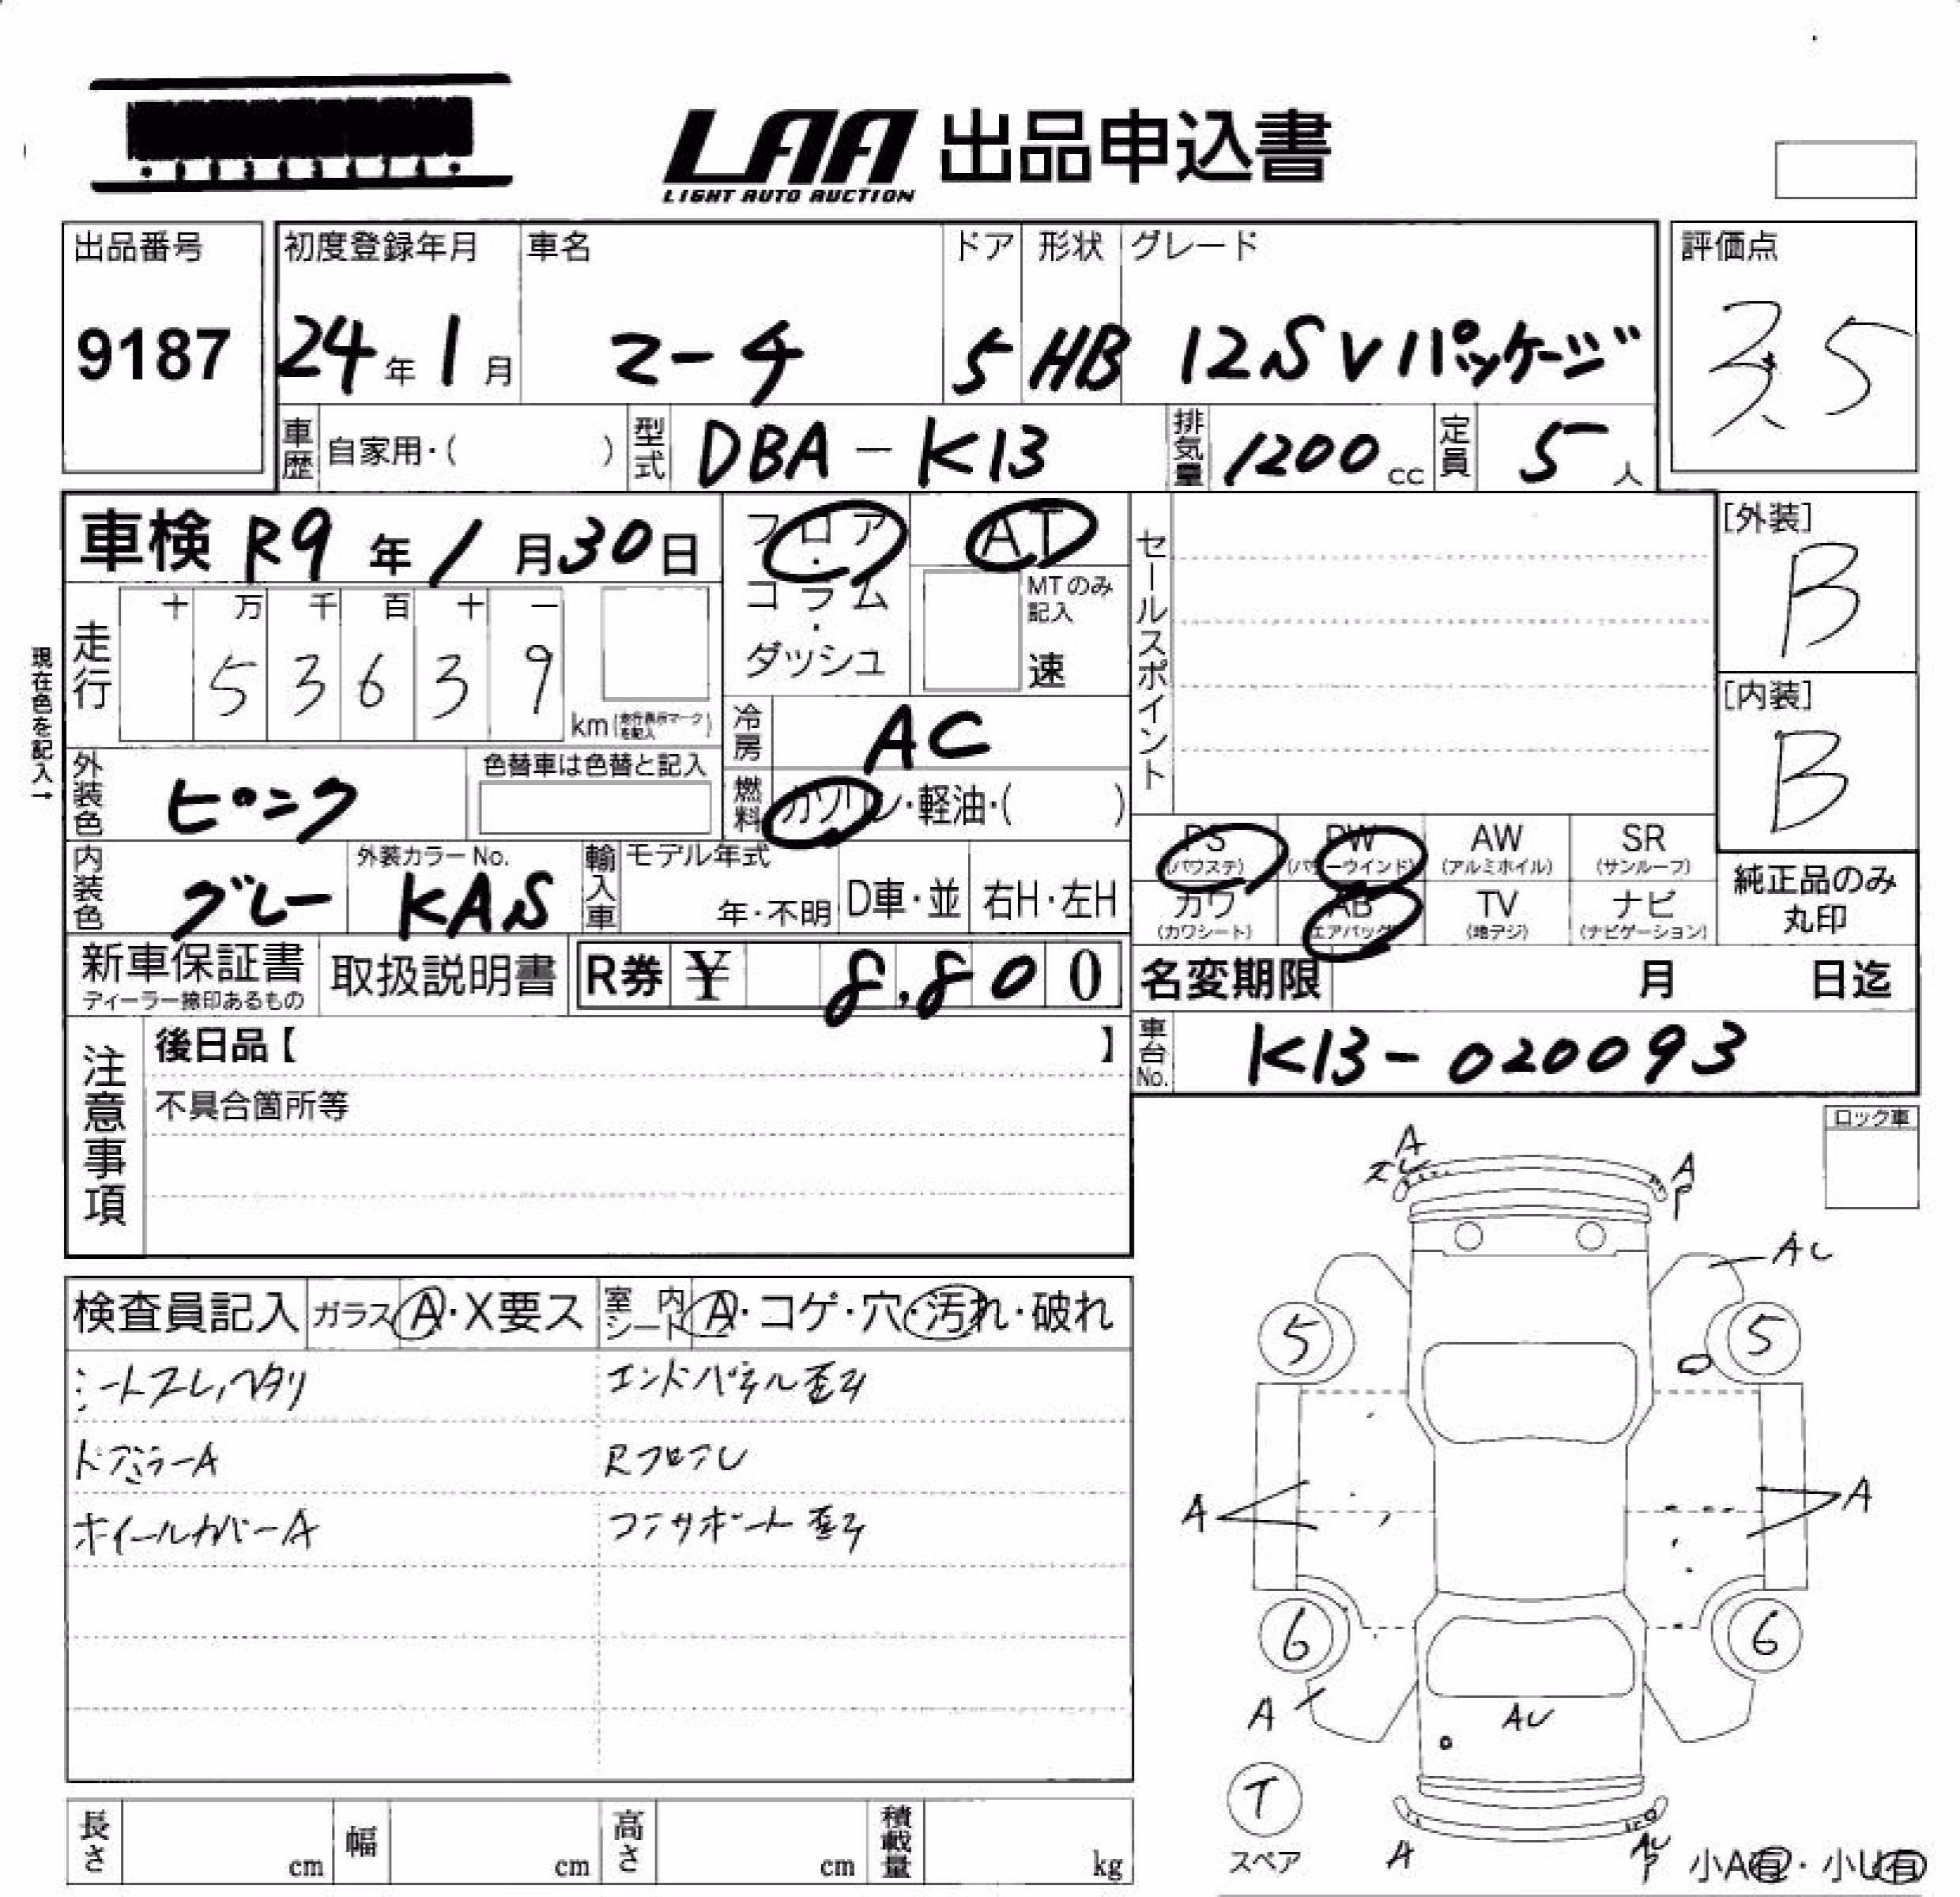 LAA 出品申込書
LIGHT AUTO AUCTION
出品番号 初度登録年月 車名 ドア 形状 グレード 評価点
9187 24年1月 マーチ 5 HB 12S Vパッケージ 3.5
車歴 自家用・( ) 型式 DBA-K13 排気量 1200cc 定員 5人
車検 R9年1月30日 フロア・コラム・ダッシュ AT セールスポイント [外装]
B
MTのみ記入
速
走行 十 万 千 百 十 一
5 3 6 3 9
km (走行表示マークを記入)
現在色を記入→
[内装]
B
冷房 AC
外装色 ピンク 色替車は色替と記入 燃料 ガソリン・軽油・( )
PS (パワステ) PW (パワーウインド) AW (アルミホイル) SR (サンルーフ)
内装色 グレー 外装カラーNo. KAS 輸入車 モデル年式 年・不明 D車・並 右H・左H
カワ (カワシート) AB (エアバッグ) TV (地デジ) ナビ (ナビゲーション) 純正品のみ丸印
新車保証書 ディーラー捺印あるもの 取扱説明書 R券 ¥ 8,800 名変期限 月 日迄
注意事項 後日品【 】 車台No. K13-020093
不具合箇所等
ロック車
検査員記入 ガラス A・X要ス 室内シート A・コゲ・穴・汚れ・破れ
シートスレ、ヘタリ エンドパネル歪み
ドアミラーA RフロアU
ホイールカバーA コアサポート歪み
A
A
AU
5 5
A A
6 6
A
AU
T
スペア
A
AU
小A有・小U有
長さ cm 幅 cm 高さ cm 積載量 kg